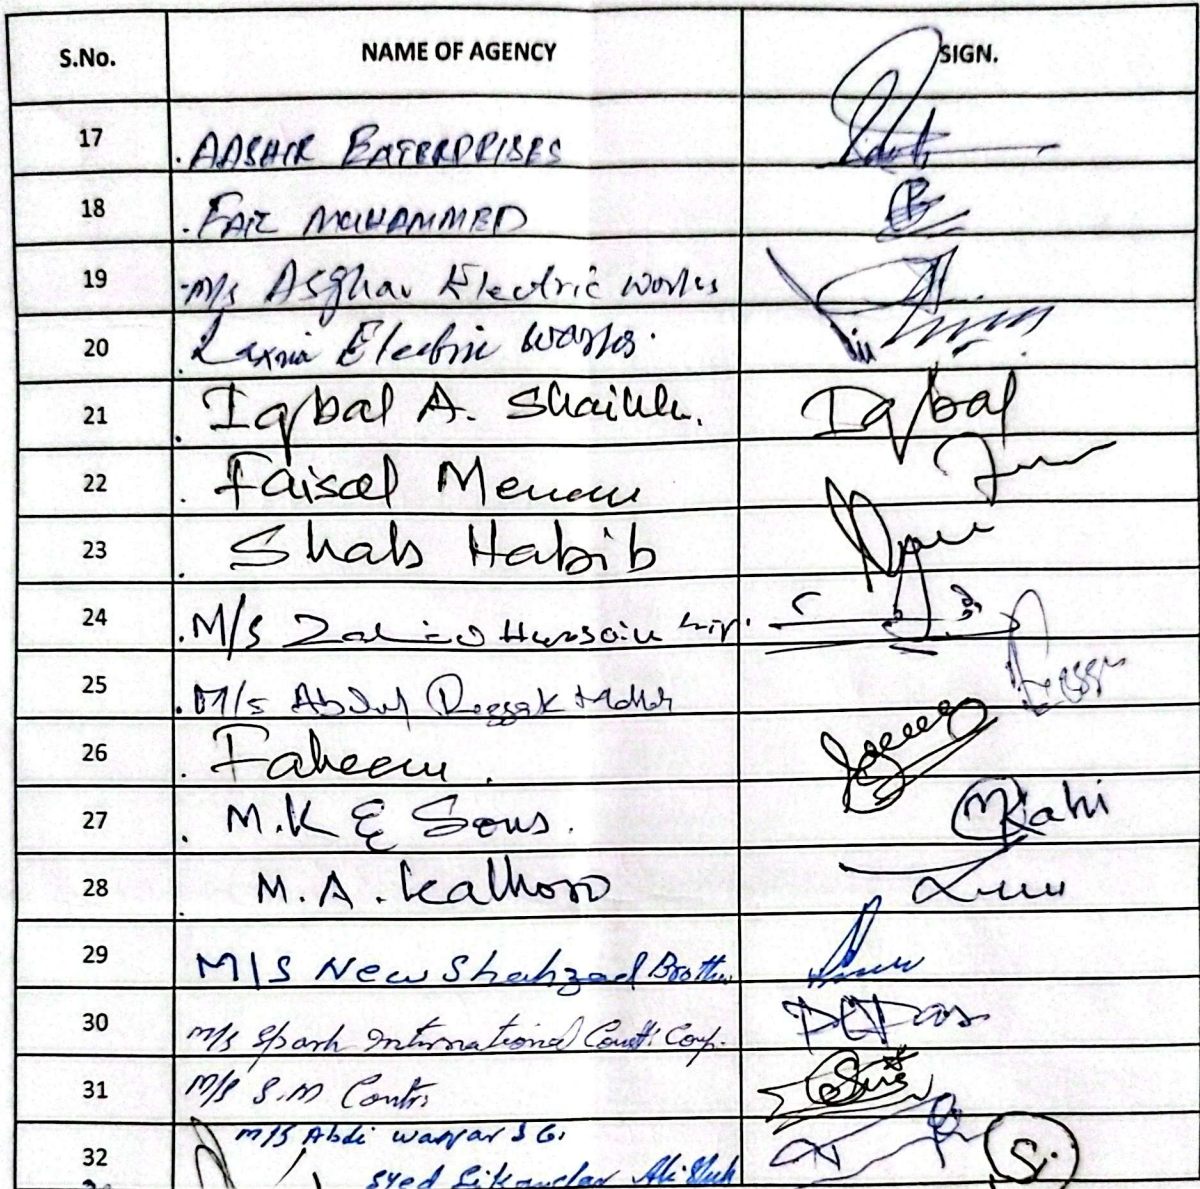 S.No. NAME OF AGENCY SIGN.
17 AASHIR ENTERPRISES
18 FAIZ MUHAMMED
19 M/s Asghar Electric Works
20 Electric Works.
21 Iqbal A. Shaikh. Iqbal
22 Faisal Memon
23 Shah Habib
24 M/s Zahid Hussain
25 M/s Abdul Razzak
26 Faheem.
27 M.K & Sons.
28 M.A. Kalhoro
29 M/S New Shahzad Brother
30 M/s Spark International Constt: Corp.
31 M/s S.M Contr:
32 M/S Abdi
Syed Sikandar Ali Shah